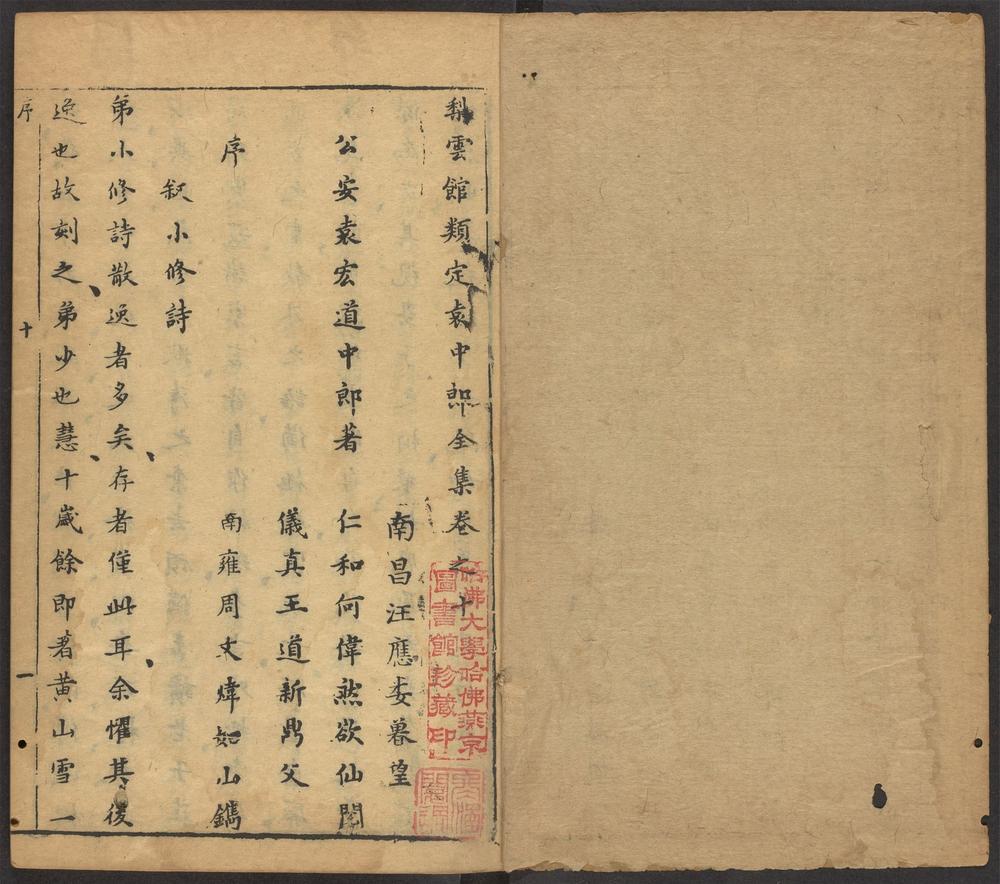 梨雲館類定袁中郎全集卷之十
南昌汪應委暮望
公安袁宏道中郎著 仁和何偉然欲仙閱
儀真王道新鼎父
序 南雍周文煒如山鐫
叙小修詩
弟小修詩散逸者多矣存者僅此耳余懼其後
逸也故刻之弟少也慧十歲餘即著黃山雪一
序 十 一
哈佛大學哈佛燕京
圖書館珍藏印